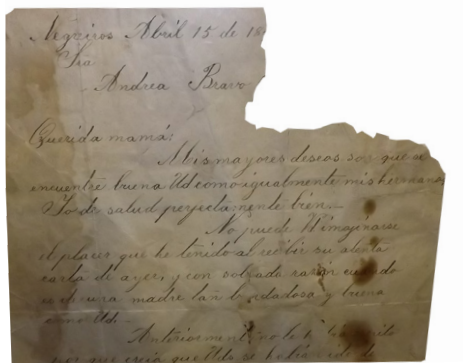 Negreiros Abril 15 de 18
Sra
Andrea Bravo
Querida mamá:
Mis mayores deseos son que se
encuentre buena Ud como igualmente mis hermanas
Yo de salud perfectamente bien.
No puede U imajinarse
el placer que he tenido al recibir su atenta
carta de ayer, y con sobrada razón cuando
es de una madre tan bondadosa y buena
como Ud.
Anteriormente no le
por que creia que Uds se